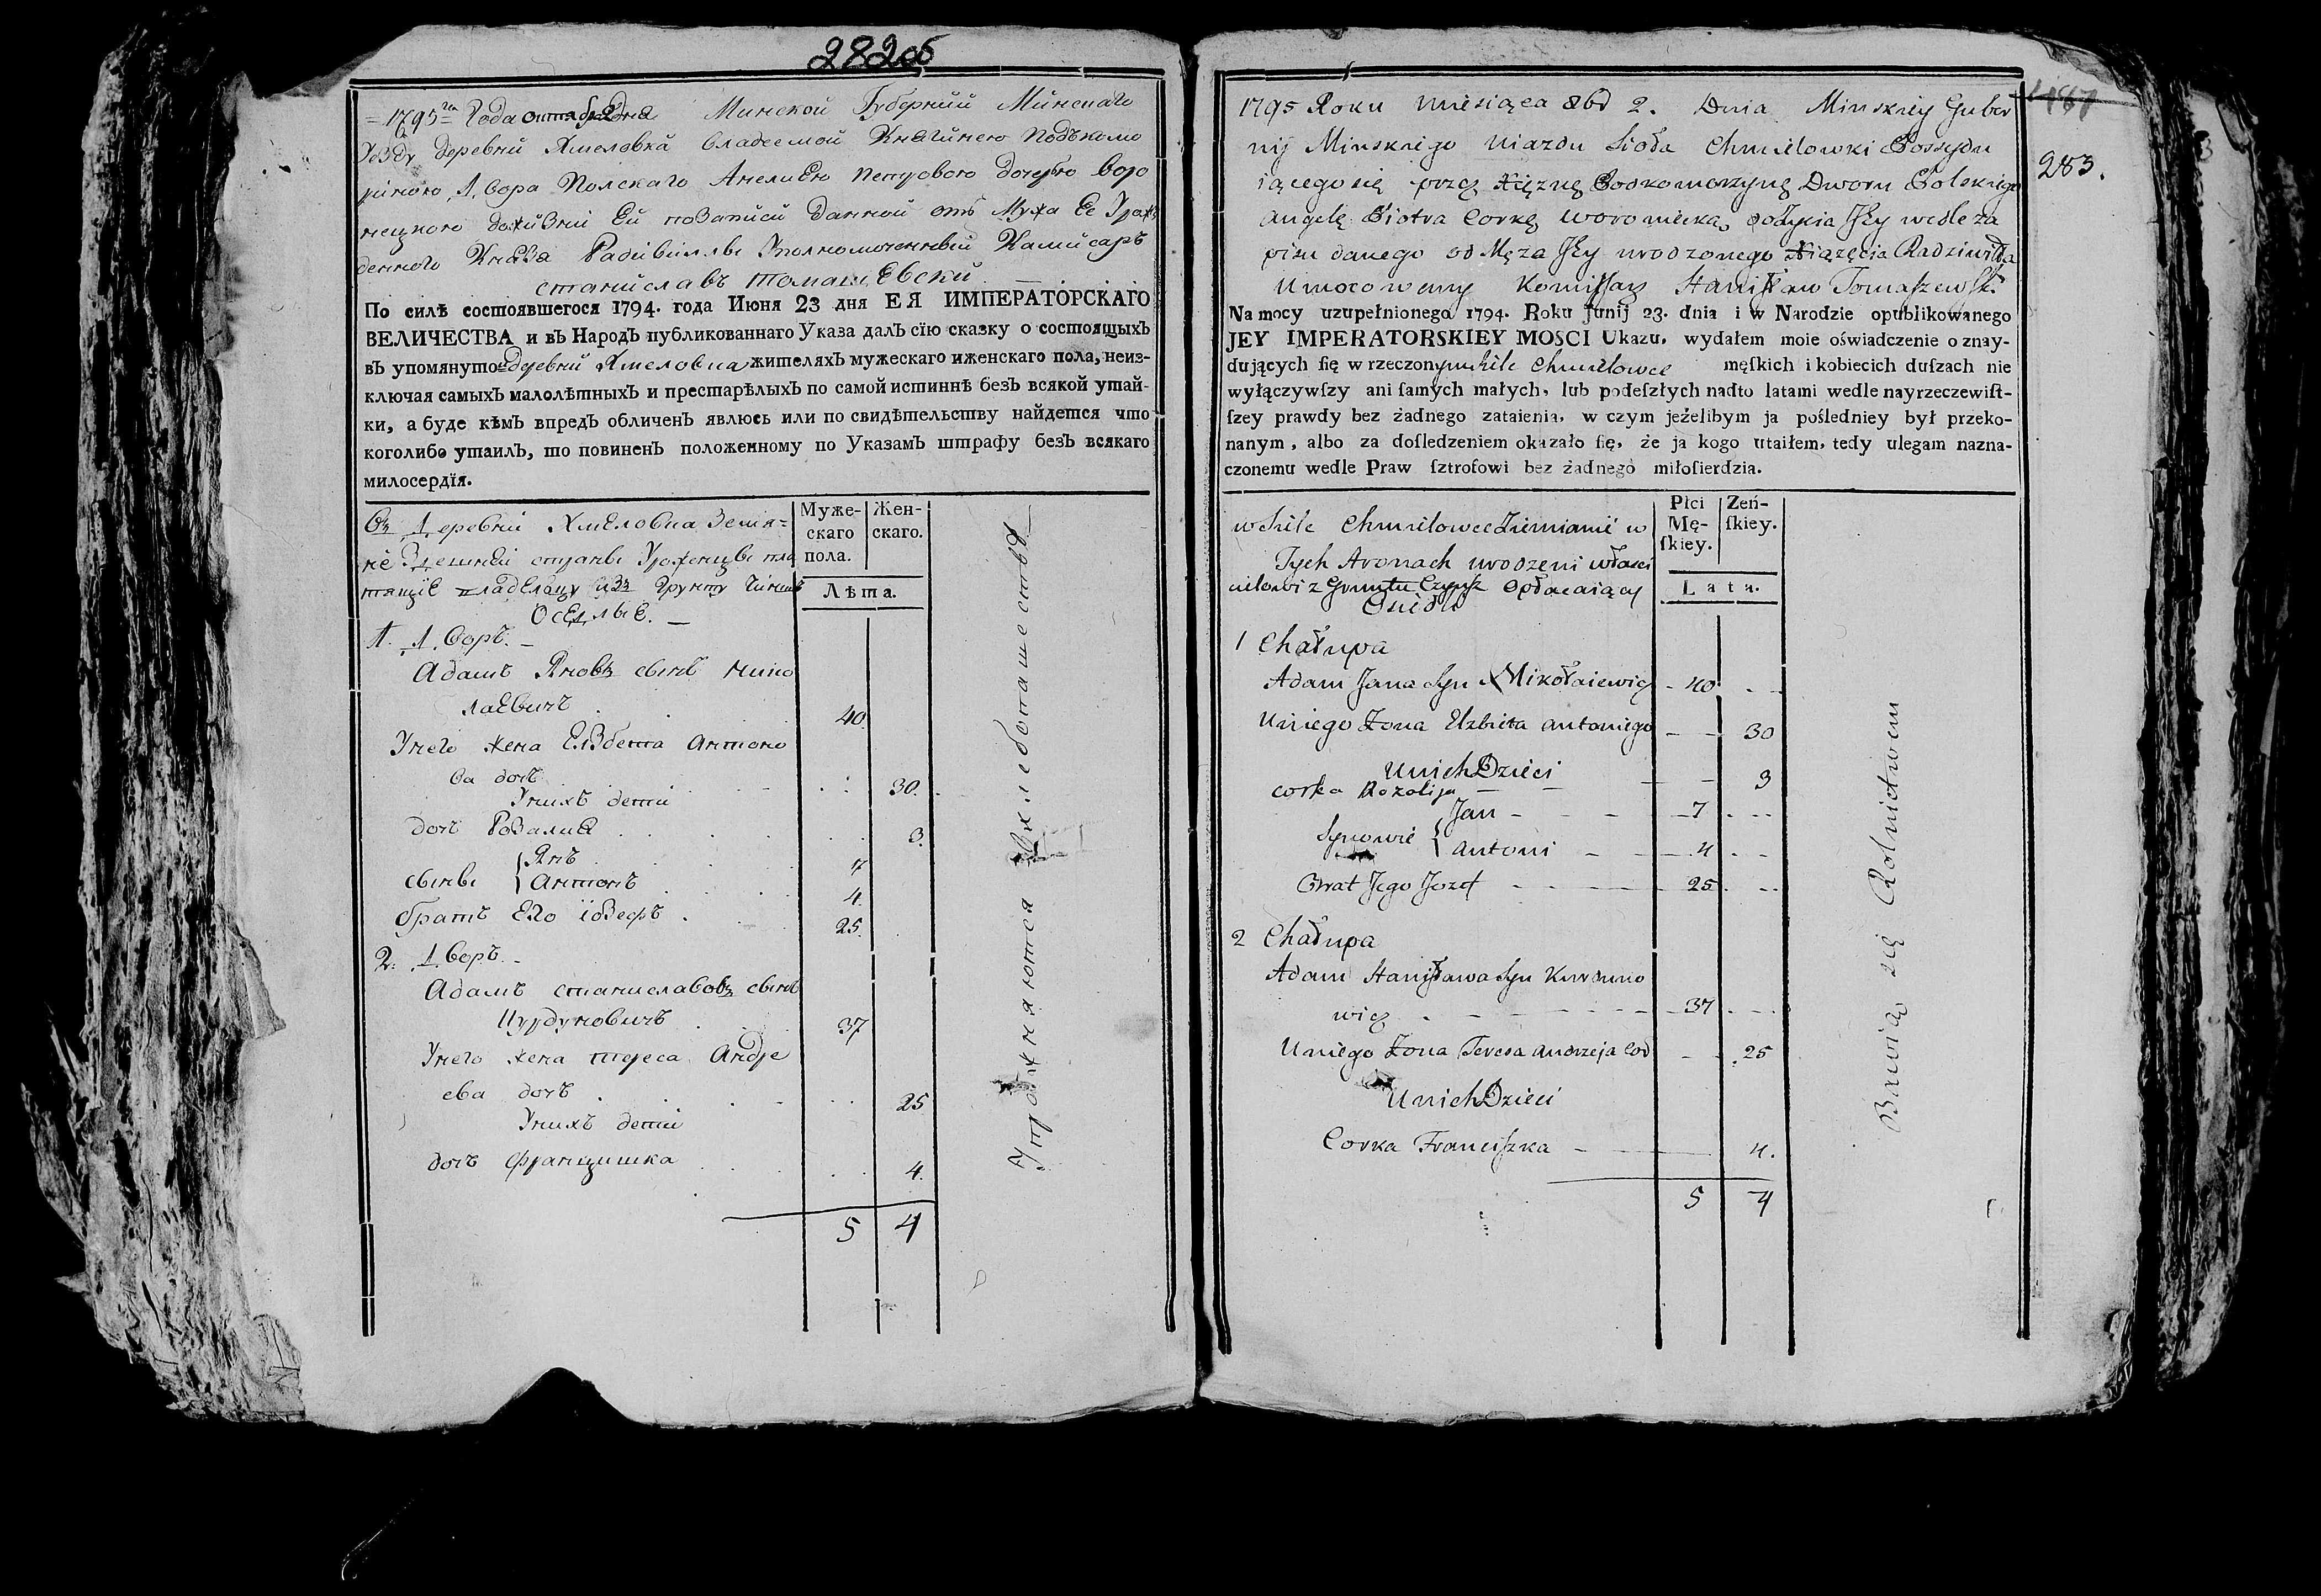 282об
= 1795го Года октября 2 дня Минской Губернии Минскаго
Уезду деревни Хмеловки владеемой Княгинею Подкомо
риною Двора Полскаго Анелиею Петровою дочерью Воро
нецкого дожизни Ей позаписи данной отъ Мужа Ее Урож
денного Князя Радивилла Уполномоченный Камисаръ
станиславъ томашевски
По силѣ состоявшегося 1794. года Июня 23 дня ЕЯ ИМПЕРАТОРСКАГО
ВЕЛИЧЕСТВА и въ Народъ публикованнаго Указа далъ сїю сказку о состоящыхъ
въ упомянутой деревни Хмеловка жителяхъ мужескаго иженскаго пола, неиз-
ключая самыхъ малолѣтныхъ и престарѣлыхъ по самой истиннѣ безъ всякой утай-
ки, а буде кѣмъ впредъ обличенъ явлюсь или по свидѣтельству найдется что
коголибо утаилъ, то повиненъ положенному по Указамъ штрафу безъ всякаго
милосердїя.
Въ Деревни Хмеловка Земя=
не Здешней страны Уроженцы пла
тящие владелцу изъ Грунту Чиншъ
Оселые. —
Муже-
скаго
пола.
Жен-
скаго.
Лѣта.
1. Дворъ. —
Адамъ Яновъ сынъ мико
лаевичъ 40
Унего жена Елзбета антоно
ва дочь 30.
Унихъ дети
дочь Розалия 3.
сыны { Янъ 7
Антонъ 4.
братъ Его їозефъ 25.
2. Дворъ. —
Адамъ станиславовъ сынъ
Курдуновичъ 37
Унего жена тереса Андре
ева дочь 25
Унихъ дети
дочь францишка 4.
5 4
Упражняются Вхлебопашестве
1795 Roku miesiąca 8bd 2. Dnia Minskiey Guber
nij Minskiego Uiazdu Sioła Chmielowki Possydu
iącegosię przez Xiężnę Podkomorzynę Dworu Polskiego
Angelę Piotra Corkę Woroniecką, dożycia Jey wedle za
pisu danego od Męża Jey urodzonego Xiążęcia Radziwiłła
Umocowany Komissarz Stanisław Tomaszewski
187
283.
Na mocy uzupełnionego 1794. Roku Junij 23. dnia i w Narodzie opublikowanego
JEY IMPERATORSKIEY MOSCI Ukazu. wydałem moie oświadczenie o znay-
dujących ſię w rzeczonym siele Chmielowce męſkich i kobiecich duſzach nie
wyłączywſzy ani ſamych małych, lub podeſzłych nadto latami wedle nayrzeczewiſt-
ſzey prawdy bez żadnego zataienia, w czym jeżelibym ja pośledniey był przeko-
nanym, albo za doſledzeniem okazało ſię, że ja kogo utaiłem, tedy ulegam nazna-
czonemu wedle Praw ſztrofowi bez żadnego miłoſierdzia.
w Siele Chmielowce Ziemianie w
Tych stronach urodzeni własci
cielowi z Gruntu Czynsz opłacaiący
Osiedli
Płci
Mę-
ſkiey.
Zeń-
ſkiey.
Lata.
1 Chałupa
Adam Jana Syn Mikołaiewicz 40
Uniego Zona Elzbieta Antoniego 30
Unich Dzieci
corka Rozalija 3
Synowie { Jan 7
Antoni 4
Brat Jego Jozef 25
2 Chałupa
Adam Stanisława Syn Kurduno
wicz 37
Uniego Zona Teresa Andrzeja Cor 25
Unich Dzieci
Corka Franciszka 4.
5 4
Bawią się Rolnictwem